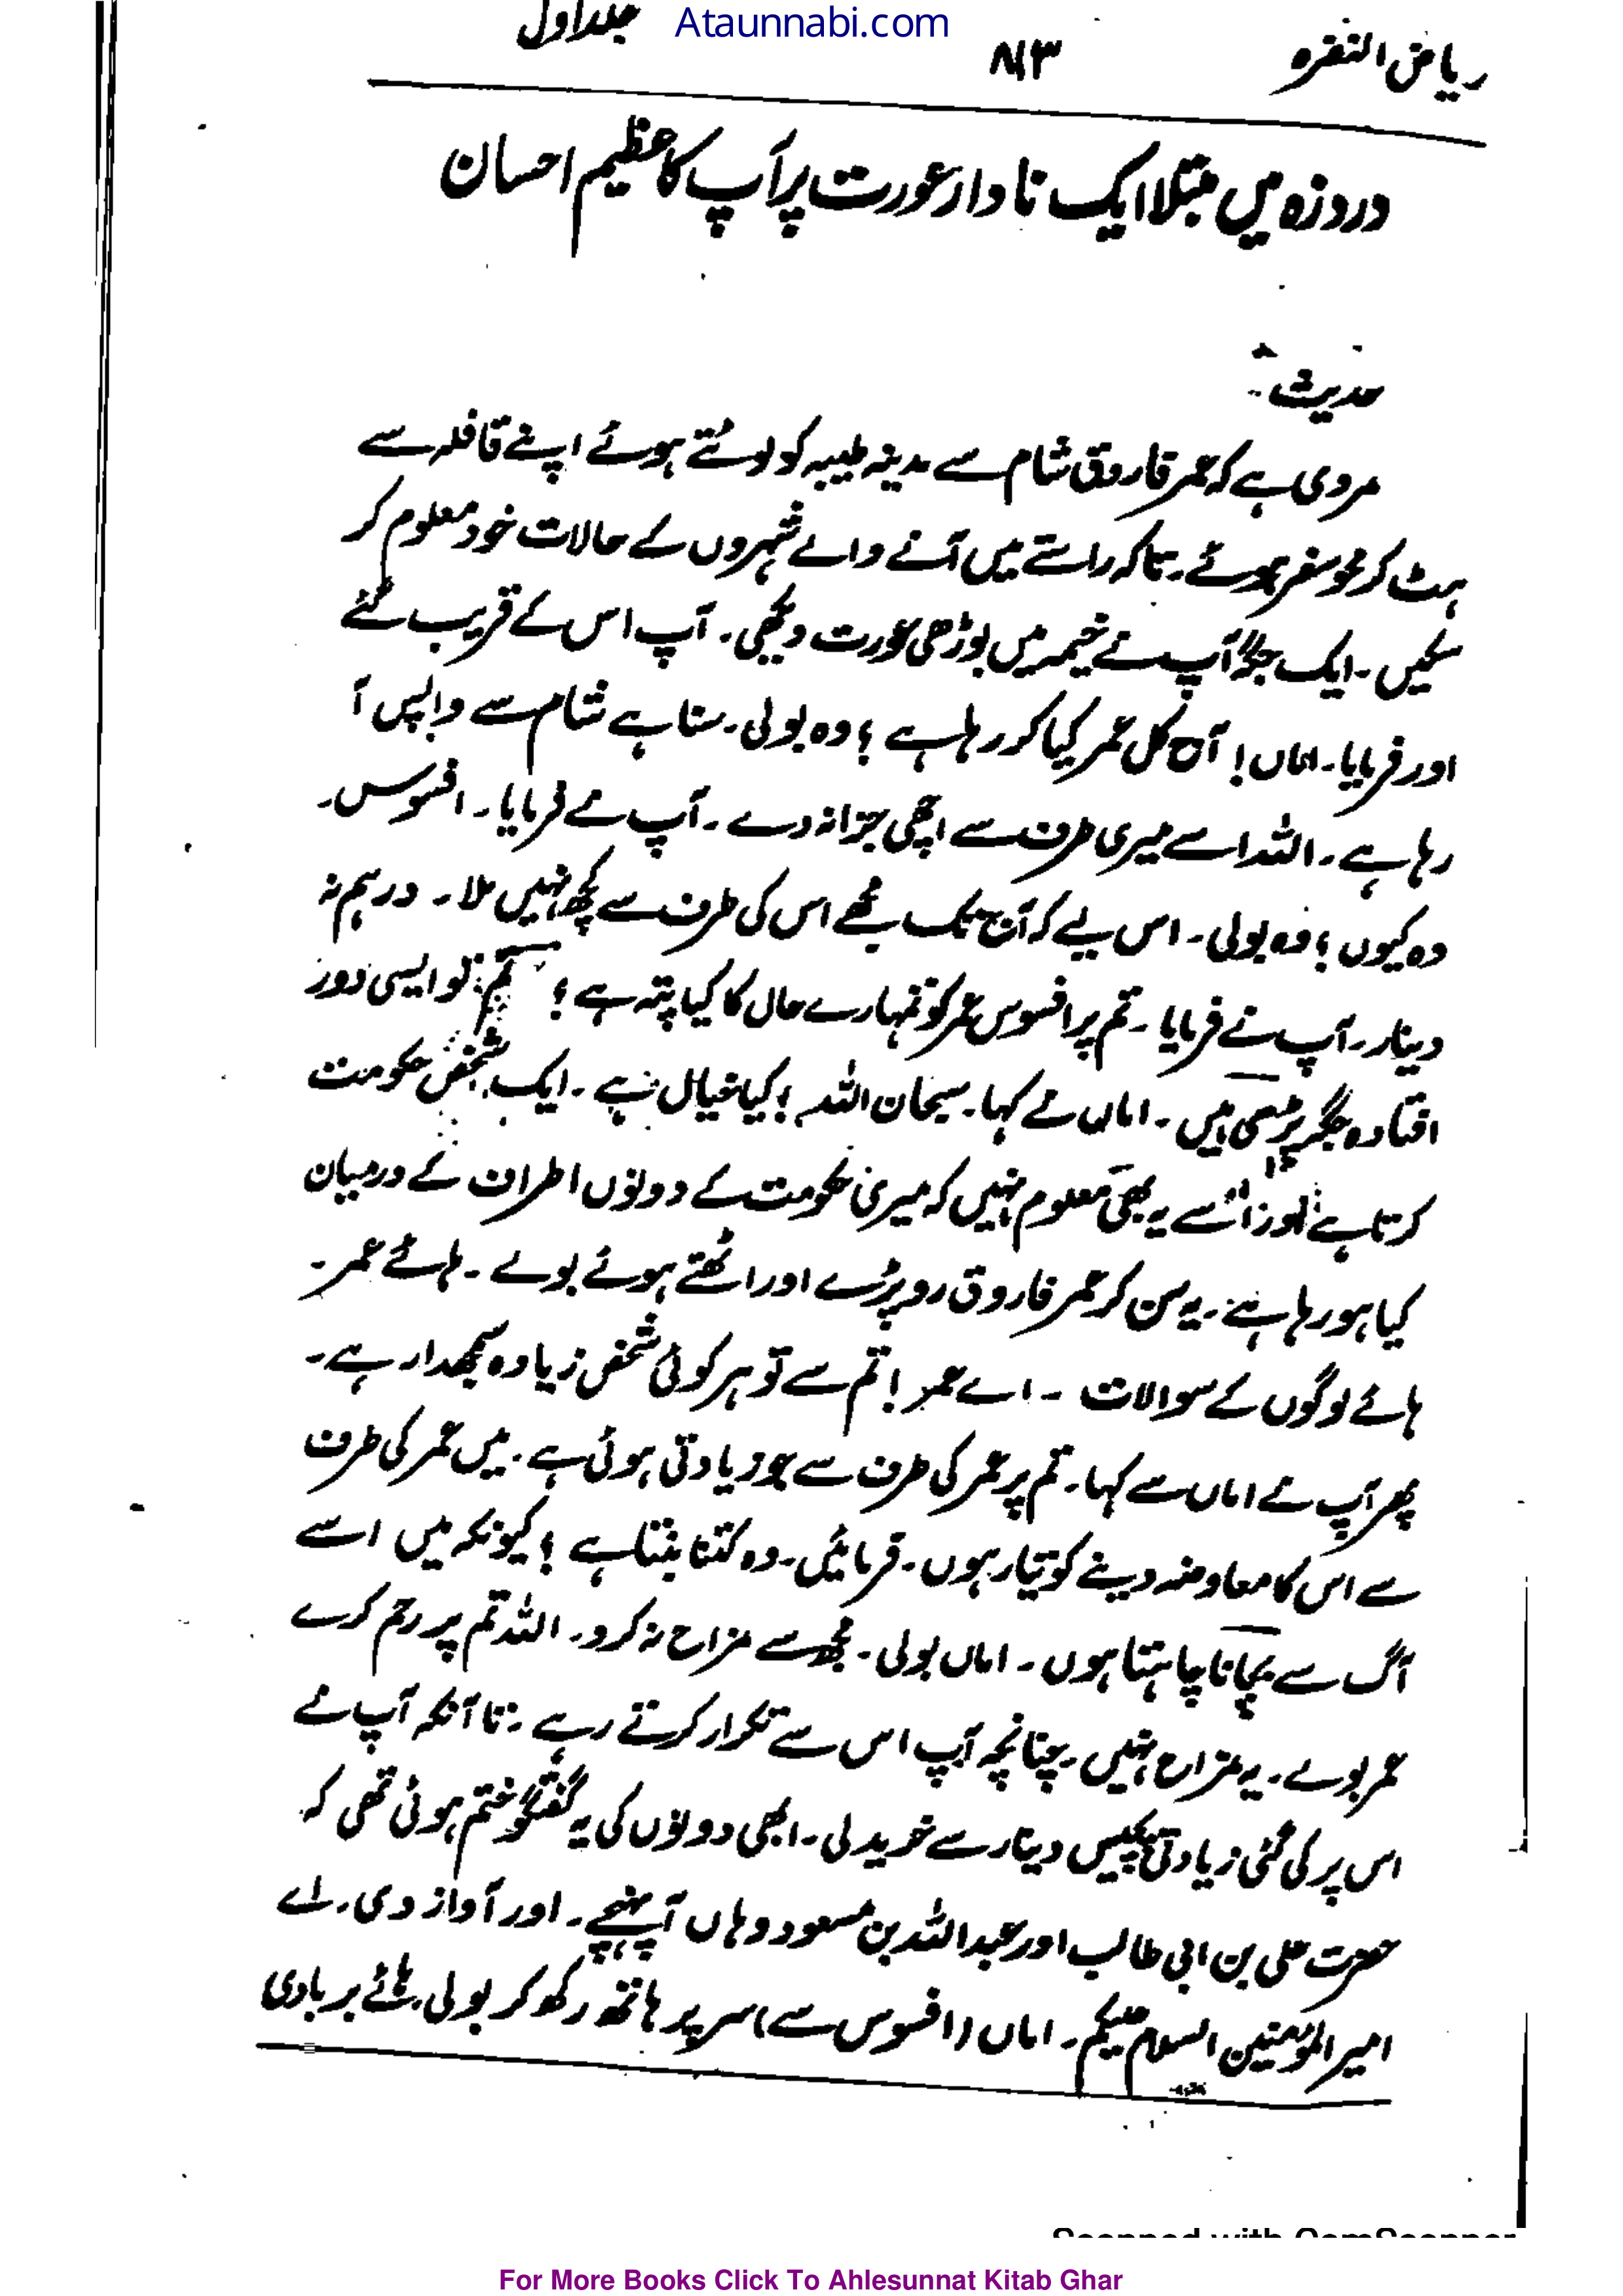 Ataunnabi.com
ریاض النضرہ ۸۱۳ جلد اول
دردزہ میں مبتلا ایک نادار عورت پر آپ کا عظیم احسان
حدیث
مروی ہے کہ عمر فاروق شام سے مدینہ طیبہ کو لوٹتے ہوئے اپنے قافلہ سے
ہٹ کر محو سفر ہوئے۔ تاکہ راستے میں آنے والے شہروں کے حالات خود معلوم کر
سکیں۔ ایک جگہ آپ نے خیمہ میں بوڑھی عورت دیکھی۔ آپ اس کے قریب گئے
اور فرمایا۔ اماں! آج کل عمر کیا کر رہا ہے؟ وہ بولی۔ سنا ہے شام سے واپس آ
رہا ہے۔ اللہ اسے میری طرف سے اچھی جزا نہ دے۔ آپ نے فرمایا۔ افسوس۔
وہ کیوں؟ وہ بولی۔ اس لیے کہ آج تک مجھے اس کی طرف سے کچھ نہیں ملا۔ درہم نہ
دینار۔ آپ نے فرمایا۔ تم پر افسوس عمر کو تمہارے حال کا کیا پتہ ہے؟ تم تو ایسی دور
افتادہ جگہ پڑھی ہیں۔ اماں نے کہا۔ سبحان اللہ! کیا خیال ہے۔ ایک شخص حکومت
کرتا ہے اور اسے یہ بھی معلوم نہیں کہ میری حکومت کے دونوں اطراف کے درمیان
کیا ہو رہا ہے۔ یہ سن کر عمر فاروق رو پڑے اور اٹھتے ہوئے بولے۔ ہائے عمر۔
ہائے لوگوں کے سوالات۔ اے عمر! تم سے تو ہر کوئی شخص زیادہ سمجھدار ہے۔
پھر آپ نے اماں سے کہا۔ تم پر عمر کی طرف سے جو زیادتی ہوئی ہے۔ میں عمر کی طرف
سے اس کا معاوضہ دینے کو تیار ہوں۔ فرمائیں۔ وہ کتنا بنتا ہے؟ کیونکہ میں اسے
آگ سے بچانا چاہتا ہوں۔ اماں بولی۔ مجھ سے مزاح نہ کرو۔ اللہ تم پر رحم کرے
عمر بولے۔ یہ مزاح نہیں۔ چنانچہ آپ اس سے تکرار کرتے رہے۔ تا آنکہ آپ نے
اس پر کی گئی زیادتی پچیس دینار سے خرید لی۔ ابھی دونوں کی یہ گفتگو ختم ہوئی تھی کہ
حضرت علی بن ابی طالب اور عبداللہ بن مسعود وہاں آ پہنچے۔ اور آواز دی۔ اے
امیر المؤمنین السلام علیکم۔ اماں (افسوس سے) سر پر ہاتھ رکھ کر بولی۔ ہائے بربادی
Scanned with CamScanner
For More Books Click To Ahlesunnat Kitab Ghar